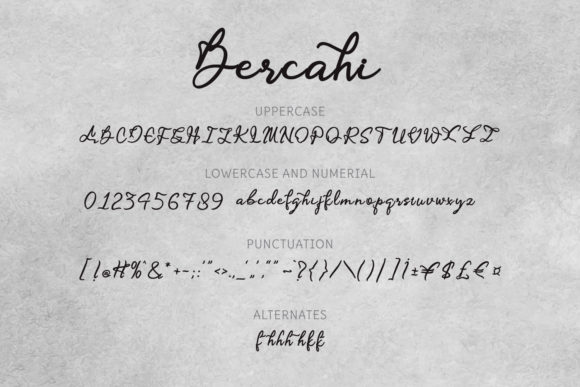 Bercahi
UPPERCASE
ABCDEFGHIJKLMNOPQRSTUVWXYZ
LOWERCASE AND NUMERIAL
0123456789 abcdefghijklmnopqrstuvwxyz
PUNCTUATION
[!@#%&*+-;:'"<>.,_‘,’,“”~`?{}/\()|]¡±¥$£€¤
ALTERNATES